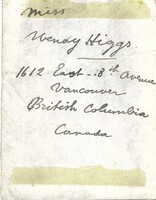 Miss
Wendy Higgs.
1612 East 8th Avenue
Vancouver
British Columbia
Canada